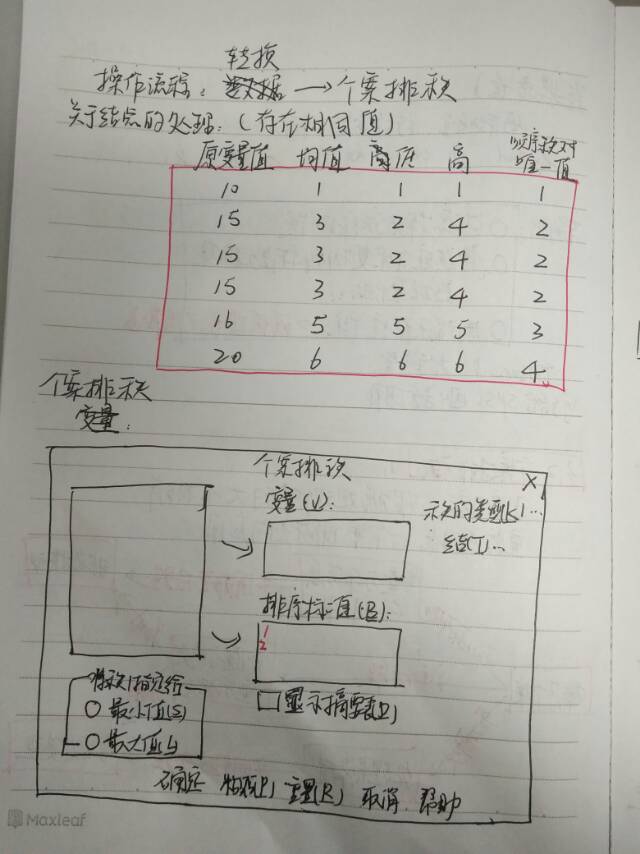 转换
操作流程: 数据 → 个案排秩
关于结点的处理:(存在相同值)
原变量值 均值 低 高 顺序秩对唯一值
10 1 1 1 1
15 3 2 4 2
15 3 2 4 2
15 3 2 4 2
16 5 5 5 3
20 6 6 6 4
个案排秩
变量:
个案排秩 X
变量(V): 示秩的类型(K)...
结(T)...
排序标值(B):
1
2
将秩1指定给
最小值(S)
最大值(L)
显示摘要表(D)
确定 粘贴(P) 重置(R) 取消 帮助
Maxleaf